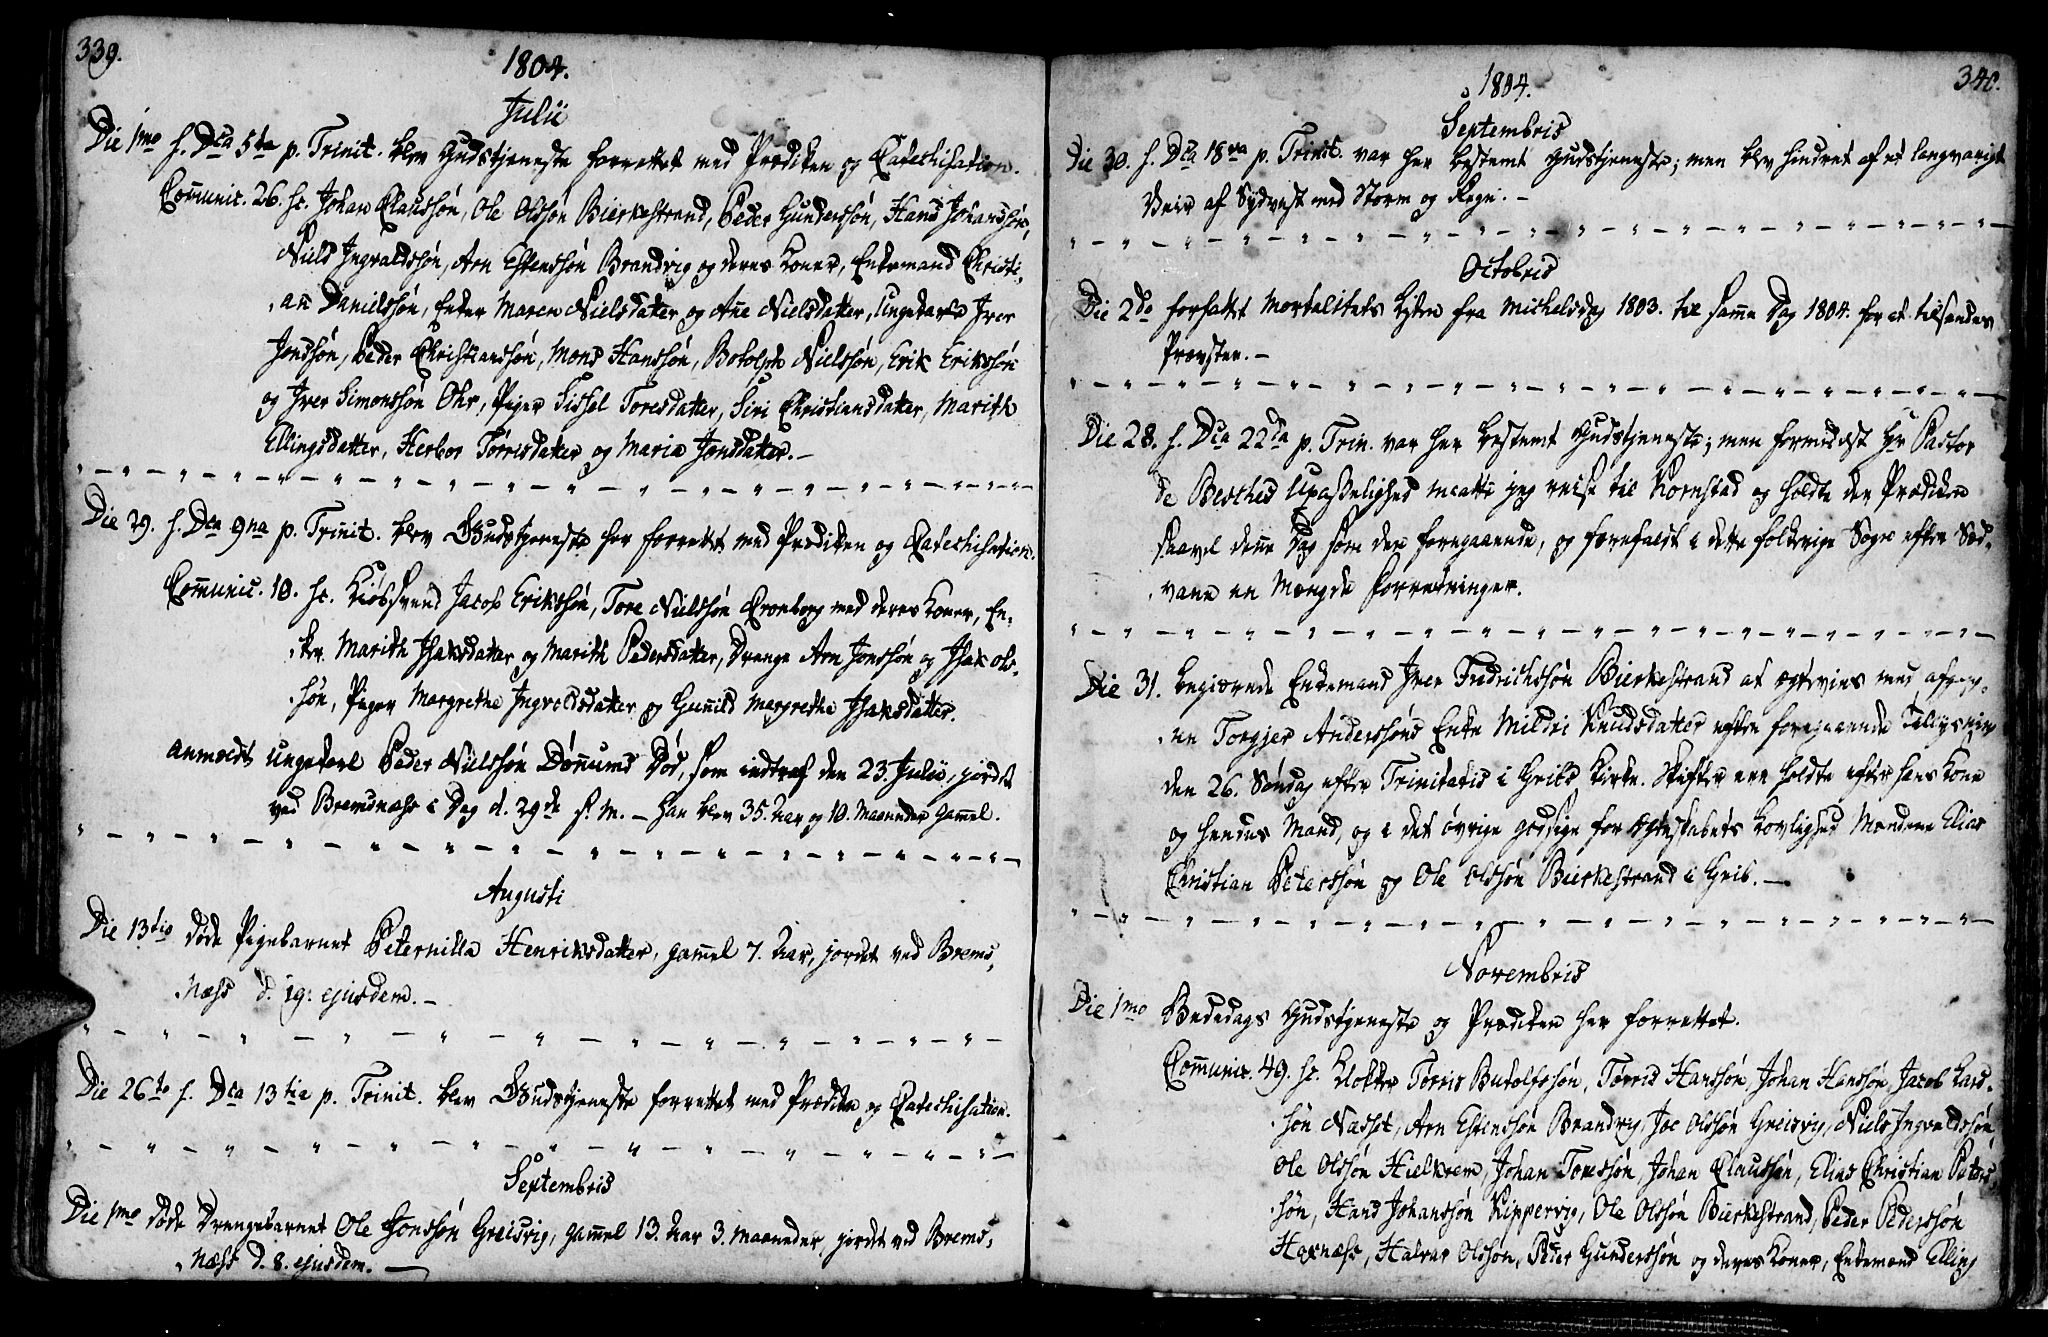 339.
1804.
Julii
Die 1mo s. Dca 5ta p. Trinit. blev Gudstjeneste forrettet med Prædiken og Catechisation.
Com̄unic. 26. sc. Johan Claussøn, Ole Olssøn Bierkestrand, Peder Gunderssøn, Hans Johanssøn,
Niels Ingvaldssøn, Arn Estenssøn Brandvig og deres Koner, Enkemand Christi-
an̄ Danielssøn, Enker Maren Nielsdatter og An̄e Nielsdatter, Ungekarle Iver
Jonssøn, Peder Christianssøn, Mons Hanssøn, Botolph Nielssøn, Erik Erikssøn
og Iver Simonssøn Ohr, Piger Sissel Toresdatter, Siri Christiansdatter, Marith
Ellingsdatter, Herbor Tørrisdatter og Maria Jonsdatter. —
Die 29. s. Dca 9na p. Trinit. blev Gudstjeneste her forrettet med Prædiken og Catechisation.
Com̄unic. 10. sc. Kiøbsvend Jacob Erikssøn, Tore Nielssøn Cronborg med deres Koner, En-
ker Marith Isaksdatter og Marith Pedersdatter, Drenge Arn Jonssøn og Isak Ols-
søn, Piger Margrethe Ingvoldsdatter og Gun̄ild Margrethe Isaksdatter.
Anmeldt Ungekarl Peder Nielssøn Døn̄ums Død, som indtraf den 23. Julii, jordet
ved Bremsnæss i Dag d. 29de s. M. — han blev 35. Aar og 10. Maaneder gam̄el.
Augusti
Die 13tio døde Pigebarnet Peternilla Henriksdatter, gam̄el 7. Aar, jordet ved Brems-
næss d. 19. ejusdem. —
Die 26to s. Dca 13tia p. Trinit. blev Gudstjeneste forrettet med Prædiken og Catechisation.
Septembris
Die 1mo døde Drengebarnet Ole Jonssøn Greisvig, gam̄el 13. Aar 3. Maaneder, jordet ved Brems-
næss d. 8. ejusdem. —
340.
1804.
Septembris
Die 30. s. Dca 18va p. Trinit. var her bestemt Gudstjeneste; men blev hindret af et langvarigt
Veir af Sydvest med Storm og Regn. —
Octobris
Die 2do forfattet Mortalitets Listen fra Michelsdag 1803. til samme Dag 1804. for at tilsendes
Provsten. —
Die 28. s. Dca 22da p. Trin. var her bestemt Gudstjeneste; men formedelst Hr Pastor
de Besches Upasselighed maatte jeg reise til Kornstad og holdte der Prædiken
saavel den̄e Dag som den foregaaende, og forefaldt i dette folkerige Sogn efter Sæd-
vane en Mængde Forretninger.
Die 31. begierede Enkemand Iver Fredrichssøn Bierkestrand at ægtevies med afgang-
ne Torgjer Anderssøns Enke Mildri Knudsdatter efter foregaaende Tillysning
den 26. Søndag efter Trinitatis i Gribs Kirke. Skifter ere holdte efter hans Kone
og hendes Mand, og i det øvrige godsige for Ægteskabets Lovlighed Mændene Elias
Christian Peterssøn og Ole Olssøn Bierkestrand i Grib. —
Novembris
Die 1mo Bededags Gudstjeneste og Prædiken her forrettet.
Com̄unic. 49. sc. Klokker Tørris Butolfssøn, Tørris Hanssøn, Johan Hanssøn, Jacob Lars-
søn Næsset, Arn Estenssøn Brandvig, Joe Olssøn Greisvig, Niels Ingvaldssøn,
Ole Olssøn Hielkrem, Johan Toressøn, Johan Claussøn, Elias Christian Peters-
søn, Hans Johanssøn Kippervig, Ole Olssøn Bierkestrand, Peder Pederssøn
Haxnæss, Halvar Olssøn, Peder Gunderssøn og deres Koner, Enkemænd Elling